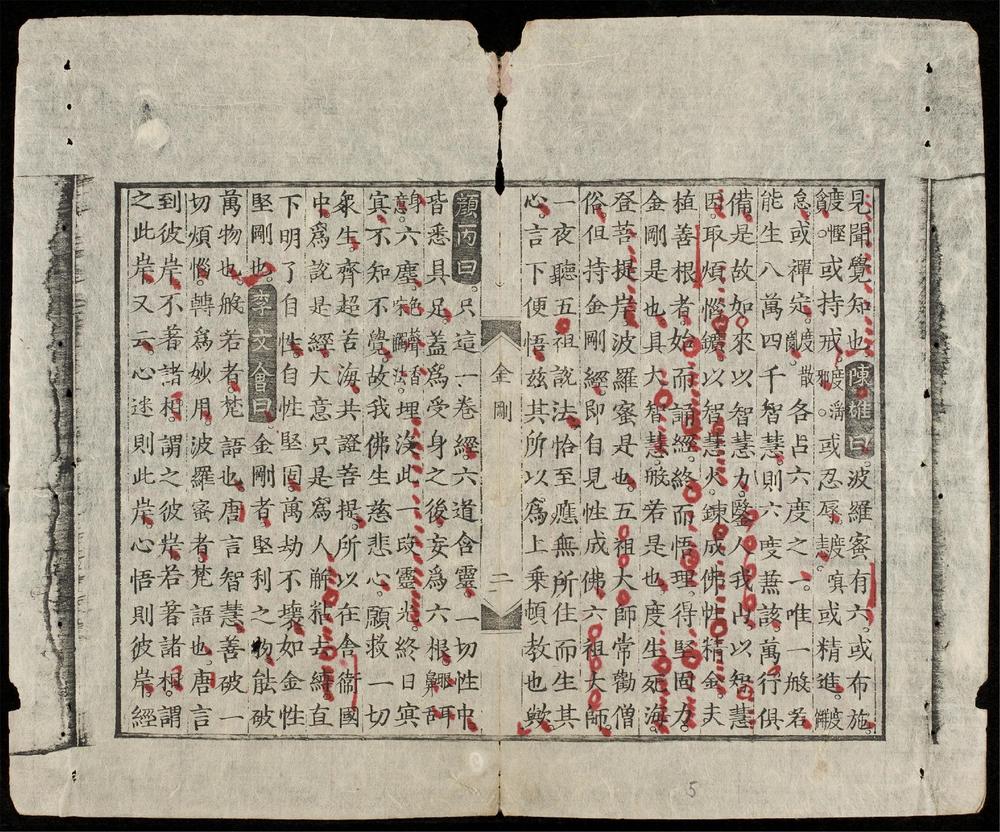 見聞覺知也陳雄曰波羅蜜有六或布施
度慳貪或持戒度淫邪或忍辱度嗔恚或精進度懈
怠或禪定度散亂各占六度之一唯一般若
能生八萬四千智慧則六度兼該萬行俱
備是故如來以智慧力鑿人我山以智慧
因取煩惱鑛以智慧火鍊成佛性精金夫
植善根者始而誦經終而悟理得堅固力
金剛是也具大智慧般若是也度生死海
登菩提岸波羅蜜是也五祖大師常勸僧
俗但持金剛經即自見性成佛六祖大師
一夜聽五祖說法恰至應無所住而生其
心言下便悟茲其所以爲上乘頓教也歟
金剛
二
顏丙曰只這一卷經六道含靈一切性中
皆悉具足蓋爲受身之後妄爲六根眼耳鼻舌
身意六塵色聲香味觸法埋沒此一段靈光終日冥
冥不知不覺故我佛生慈悲心願救一切
衆生齊超苦海共證菩提所以在舍衛國
中爲說是經大意只是爲人解粘去縛直
下明了自性自性堅固萬劫不壞如金性
堅剛也李文會曰金剛者堅利之物能破
萬物也般若者梵語也唐言智慧善破一
切煩惱轉爲妙用波羅蜜者梵語也唐言
到彼岸不著諸相謂之彼岸若著諸相謂
之此岸又云心迷則此岸心悟則彼岸經
5